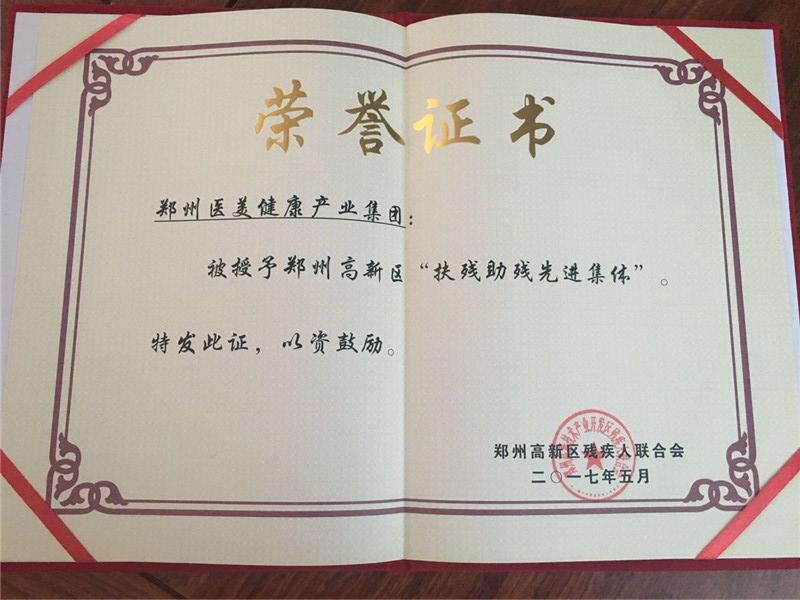 荣誉证书
郑州医美健康产业集团：
被授予郑州高新区“扶残助残先进集体”。
特发此证，以资鼓励。
郑州高新区残疾人联合会
二〇一七年五月